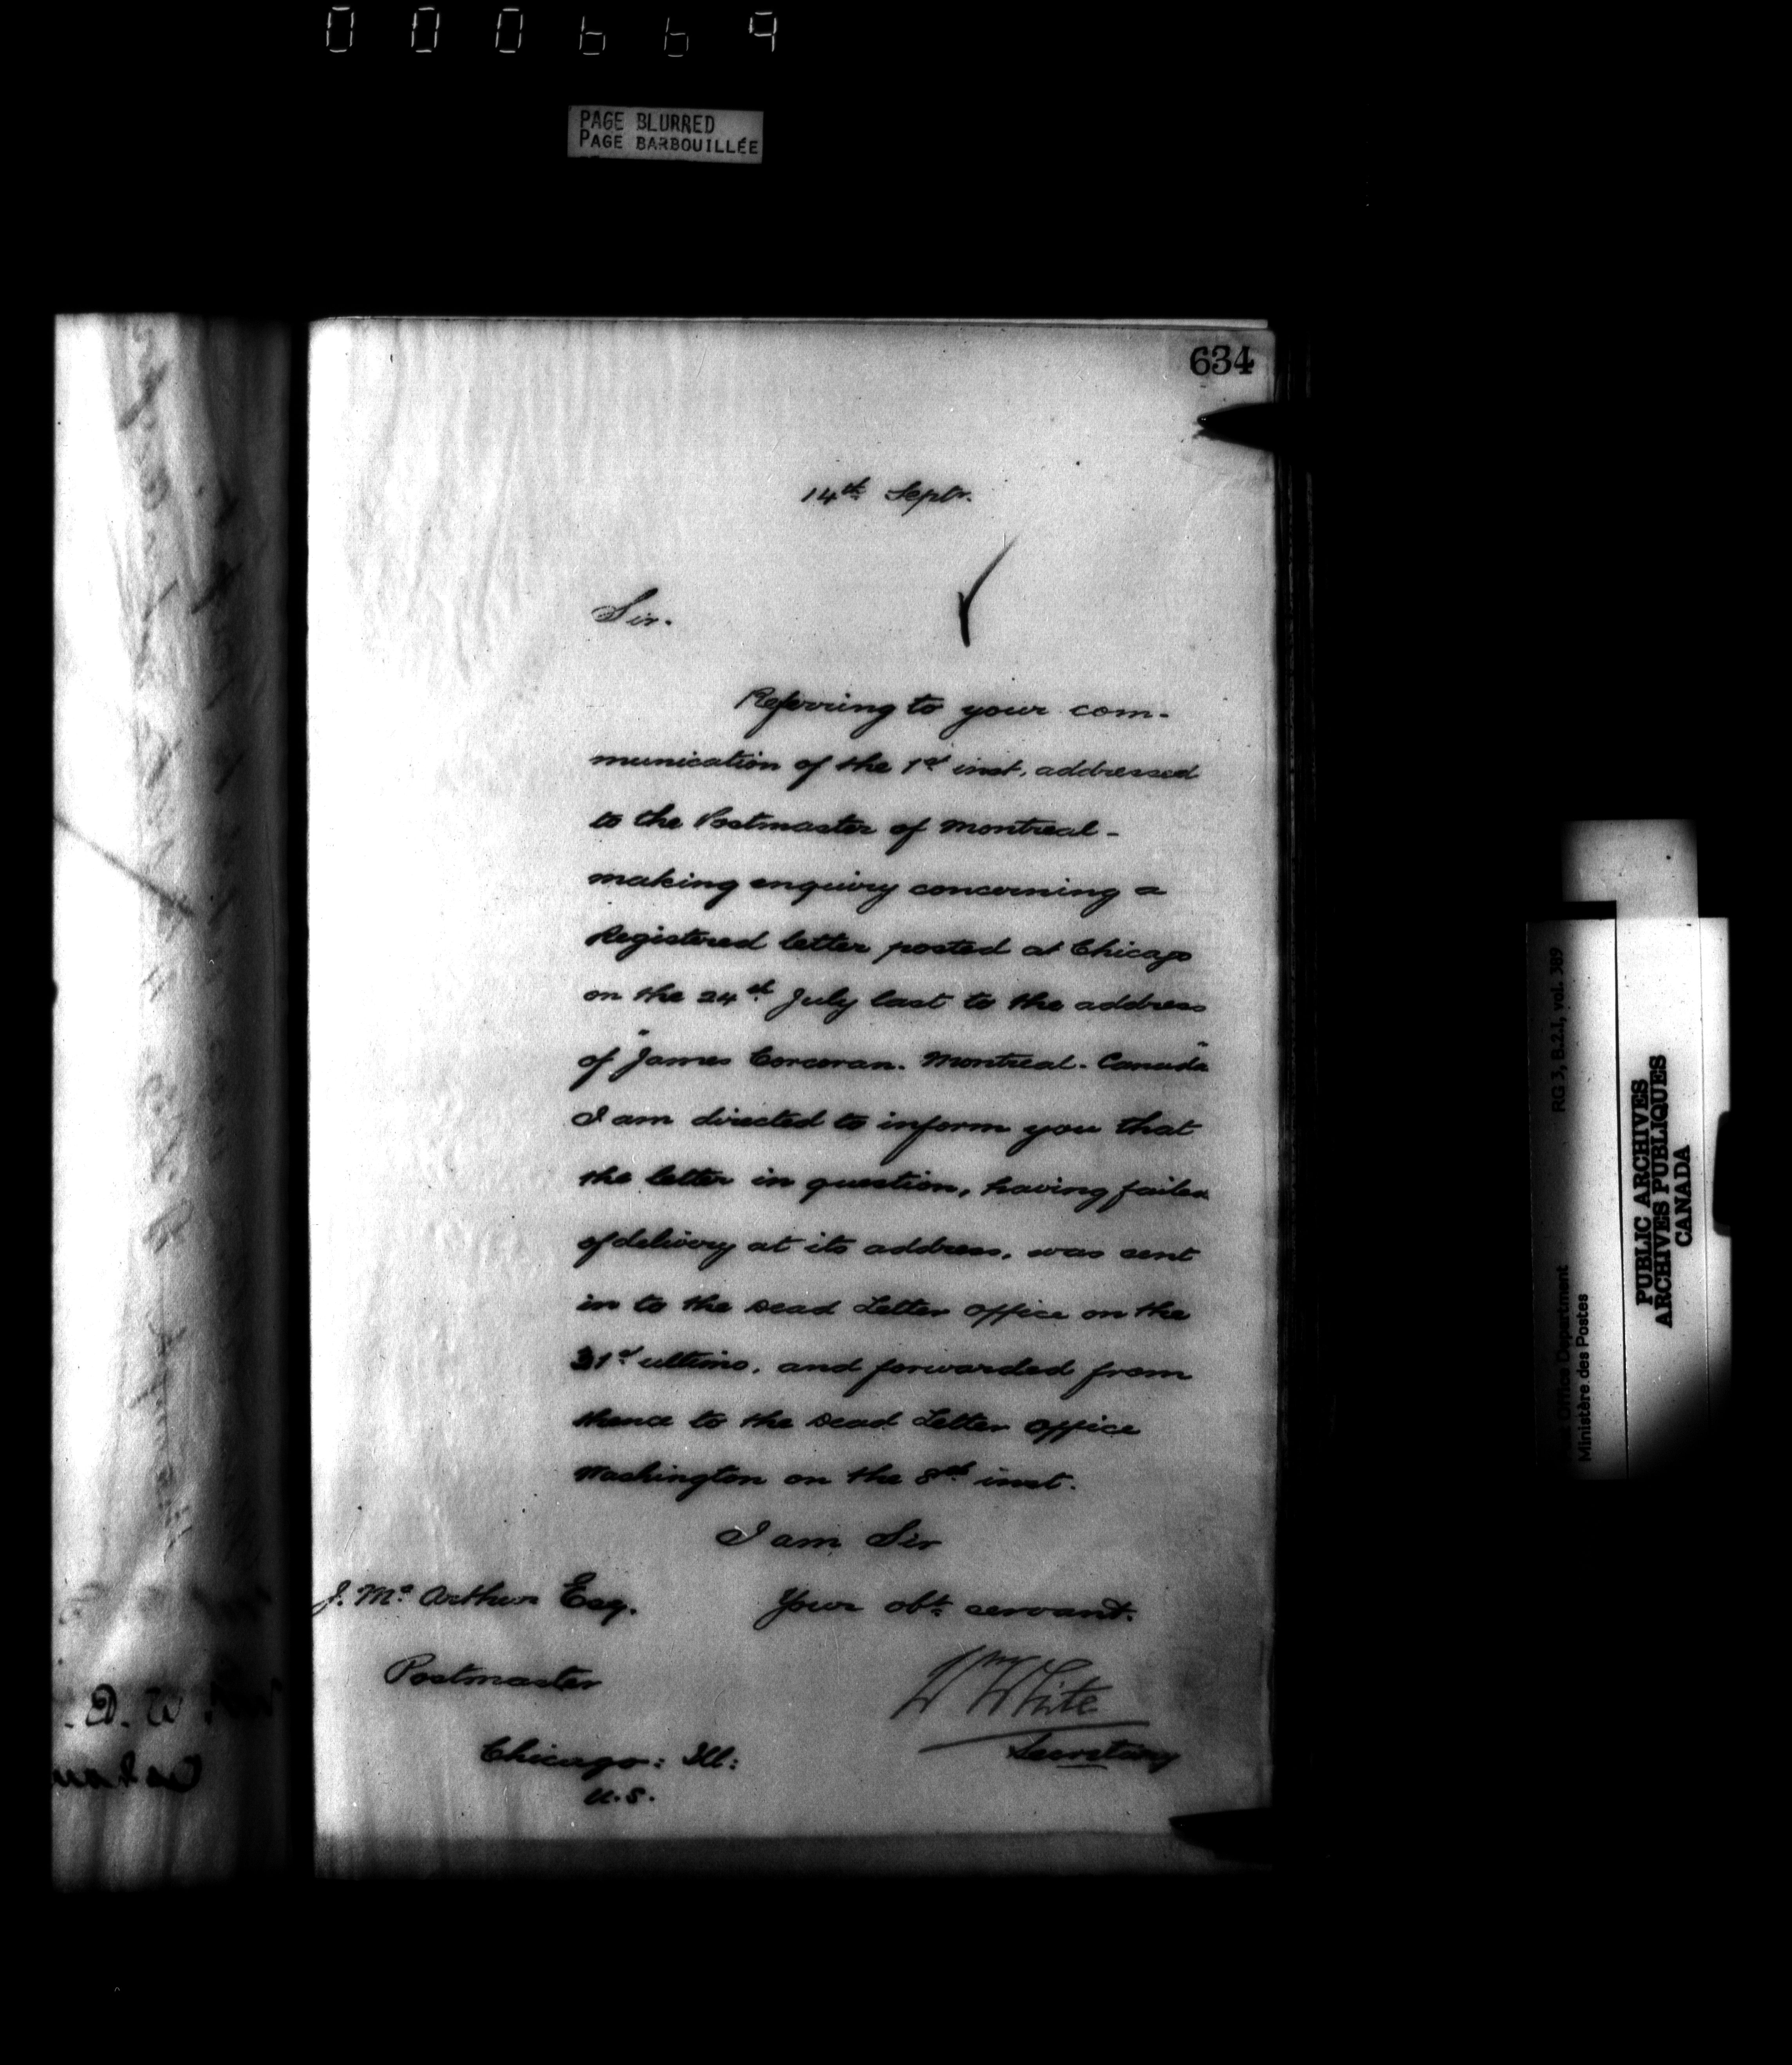 000669
PAGE BLURRED
PAGE BARBOUILLÉE
634
14th Septr.
Sir.
Referring to your com-
munication of the 1st inst. addressed
to the Postmaster of Montreal -
making enquiry concerning a
Registered letter posted at Chicago
on the 24th July last to the address
of "James Corcoran. Montreal. Canada"
I am directed to inform you that
the letter in question, having failed
of delivery at its address, was sent
in to the Dead Letter Office on the
31st ultimo, and forwarded from
thence to the Dead Letter Office
Washington on the 8th inst.
I am Sir
Your obt. servant.
Wm White
Secretary
J. Mc Arthur Esq.
Postmaster
Chicago: Ill:
U.S.
RG 3, B.2.1, vol. 389
Office Department
Ministère des Postes
PUBLIC ARCHIVES
ARCHIVES PUBLIQUES
CANADA